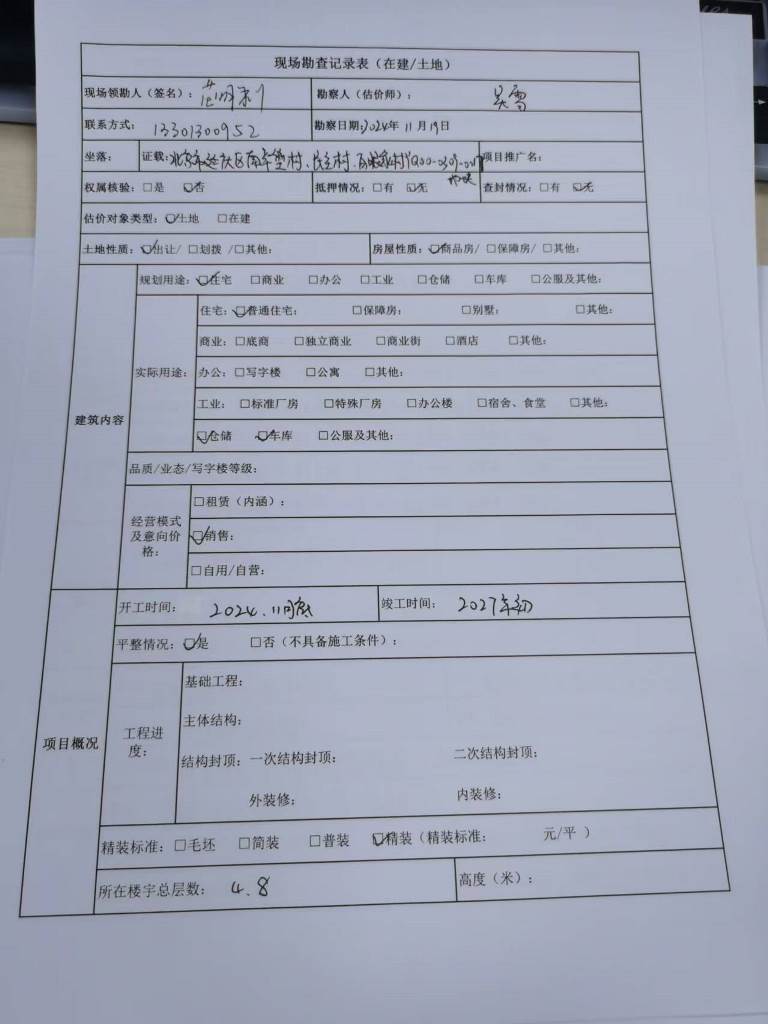 现场勘查记录表（在建/土地）
现场领勘人（签名）： 勘察人（估价师）： 吴雪
联系方式： 13301300952 勘察日期：2024年11月19日
坐落： 证载：北京市 区 村、 村、 村 项目推广名：
权属核验：□是 ☑否 抵押情况：□有 ☑无 查封情况：□有 ☑无
估价对象类型：☑土地 □在建
土地性质：☑出让/ □划拨 /□其他： 房屋性质：☑商品房/ □保障房/ □其他：
建筑内容
规划用途：☑住宅 □商业 □办公 □工业 □仓储 □车库 □公服及其他：
实际用途：
住宅：☑普通住宅： □保障房： □别墅： □其他：
商业：□底商 □独立商业 □商业街 □酒店 □其他：
办公：□写字楼 □公寓 □其他：
工业： □标准厂房 □特殊厂房 □办公楼 □宿舍、食堂 □其他：
☑仓储 ☑车库 □公服及其他：
品质/业态/写字楼等级：
经营模式及意向价格：
□租赁（内涵）：
☑销售：
□自用/自营：
项目概况
开工时间： 2024.11月底 竣工时间： 2027年初
平整情况：☑是 □否（不具备施工条件）：
工程进度：
基础工程：
主体结构：
结构封顶：一次结构封顶： 二次结构封顶：
外装修： 内装修：
精装标准：□毛坯 □简装 □普装 ☑精装（精装标准： 元/平 ）
所在楼宇总层数： 4、8 高度（米）：